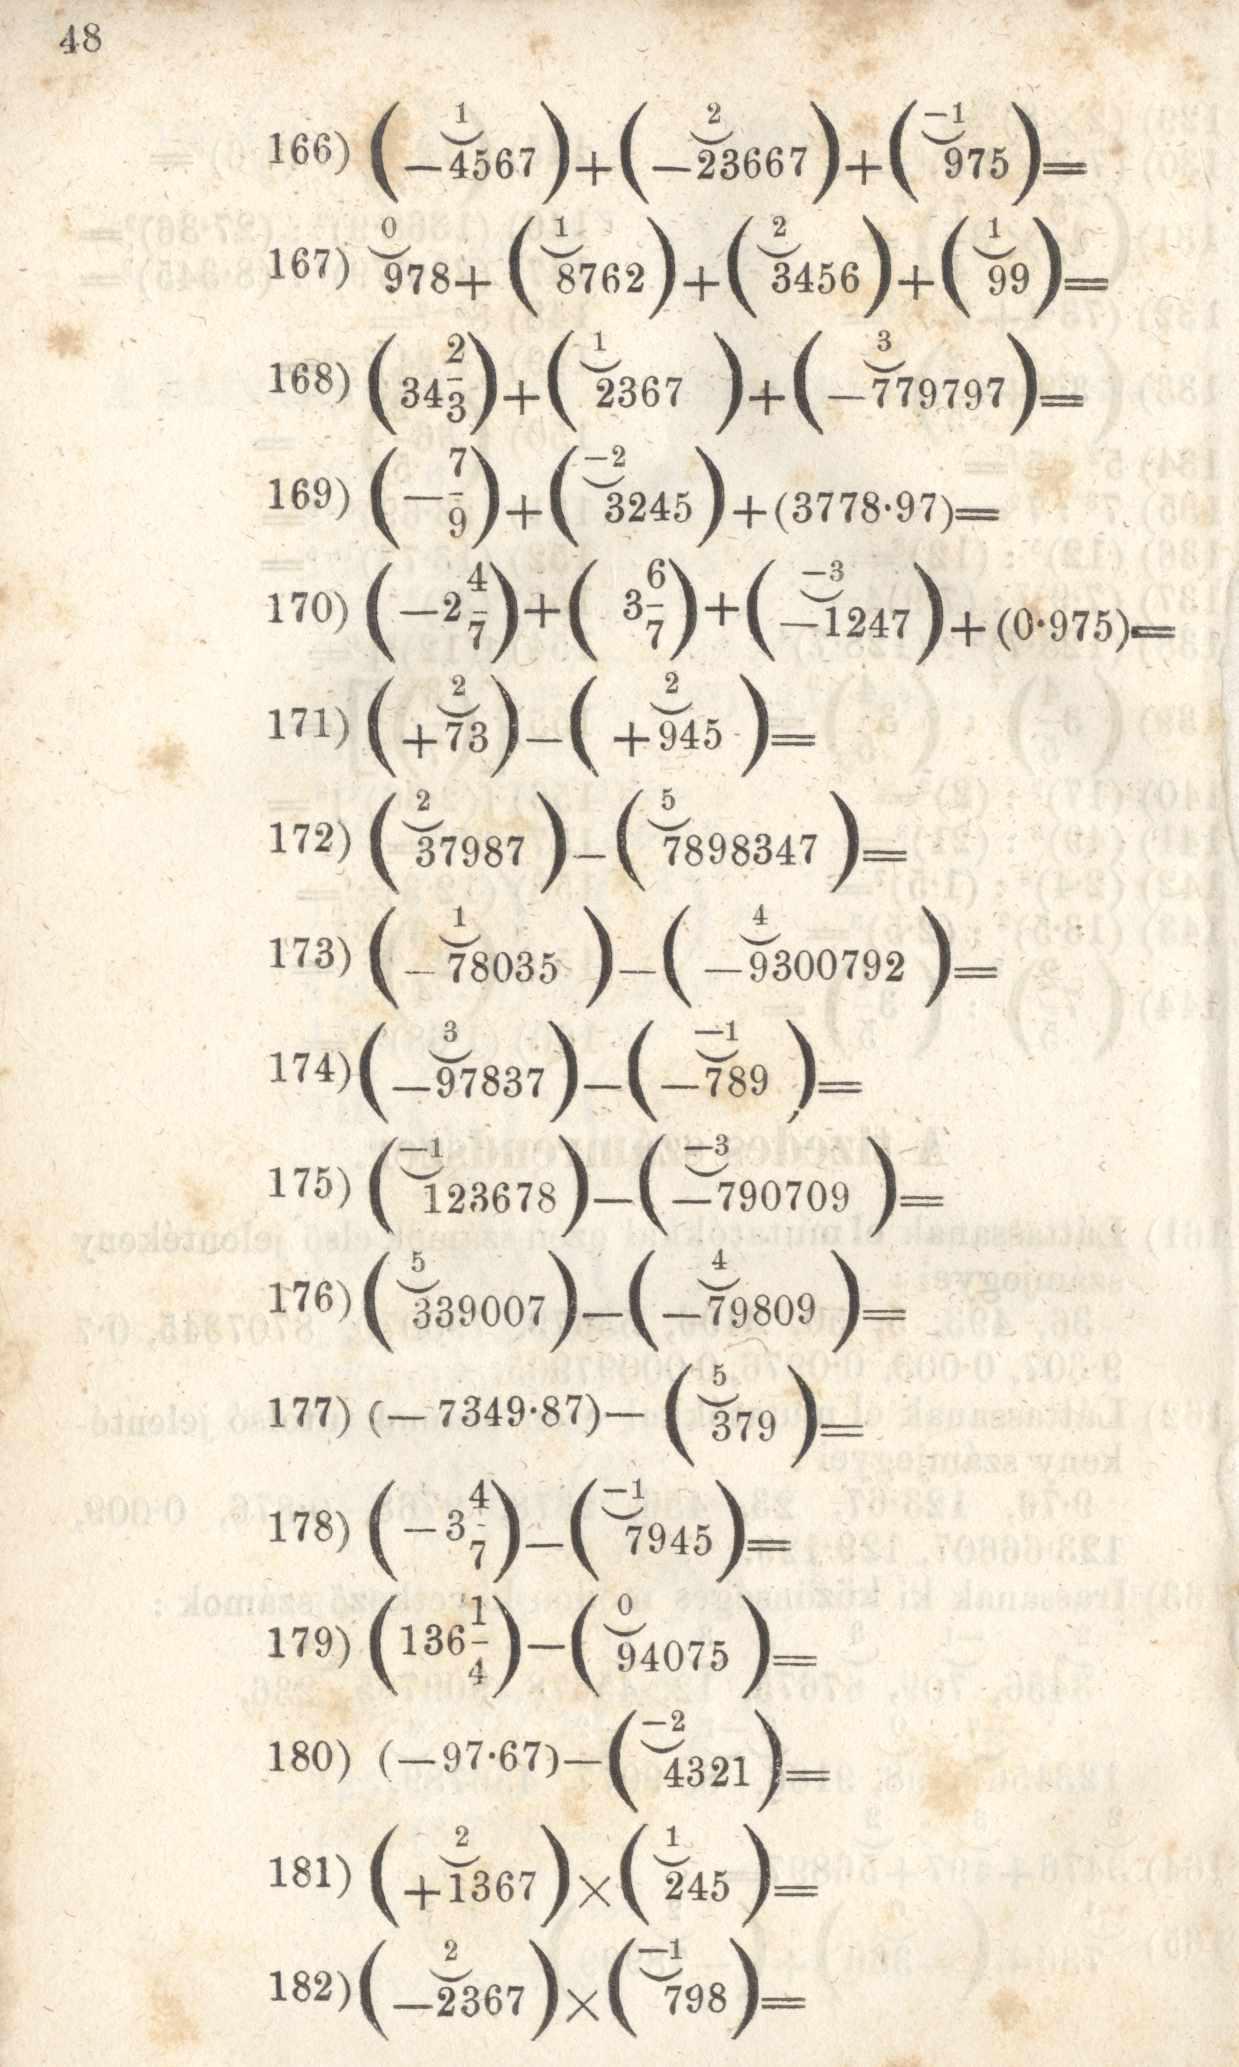 48
166) (−\overset{1}{⏝}4567)+(−\overset{2}{⏝}23667)+(\overset{−1}{⏝}975)=
167) \overset{0}{⏝}978+(\overset{1}{⏝}8762)+(\overset{2}{⏝}3456)+(\overset{1}{⏝}99)=
168) (34\frac{2}{3})+(\overset{1}{⏝}2367)+(−\overset{3}{⏝}779797)=
169) (−\frac{7}{9})+(\overset{−2}{⏝}3245)+(3778·97)=
170) (−2\frac{4}{7})+(3\frac{6}{7})+(\overset{−3}{⏝}−1247)+(0·975)=
171) (+\overset{2}{⏝}73)−(+\overset{2}{⏝}945)=
172) (\overset{2}{⏝}37987)−(\overset{5}{⏝}7898347)=
173) (−\overset{1}{⏝}78035)−(−\overset{4}{⏝}9300792)=
174) (−\overset{3}{⏝}97837)−(−\overset{−1}{⏝}789)=
175) (\overset{−1}{⏝}123678)−(\overset{−3}{⏝}−790709)=
176) (\overset{5}{⏝}339007)−(−\overset{4}{⏝}79809)=
177) (−7349·87)−(\overset{5}{⏝}379)=
178) (−3\frac{4}{7})−(\overset{−1}{⏝}7945)=
179) (136\frac{1}{4})−(\overset{0}{⏝}94075)=
180) (−97·67)−(\overset{−2}{⏝}4321)=
181) (+\overset{2}{⏝}1367)×(\overset{1}{⏝}245)=
182) (−\overset{2}{⏝}2367)×(\overset{−1}{⏝}798)=